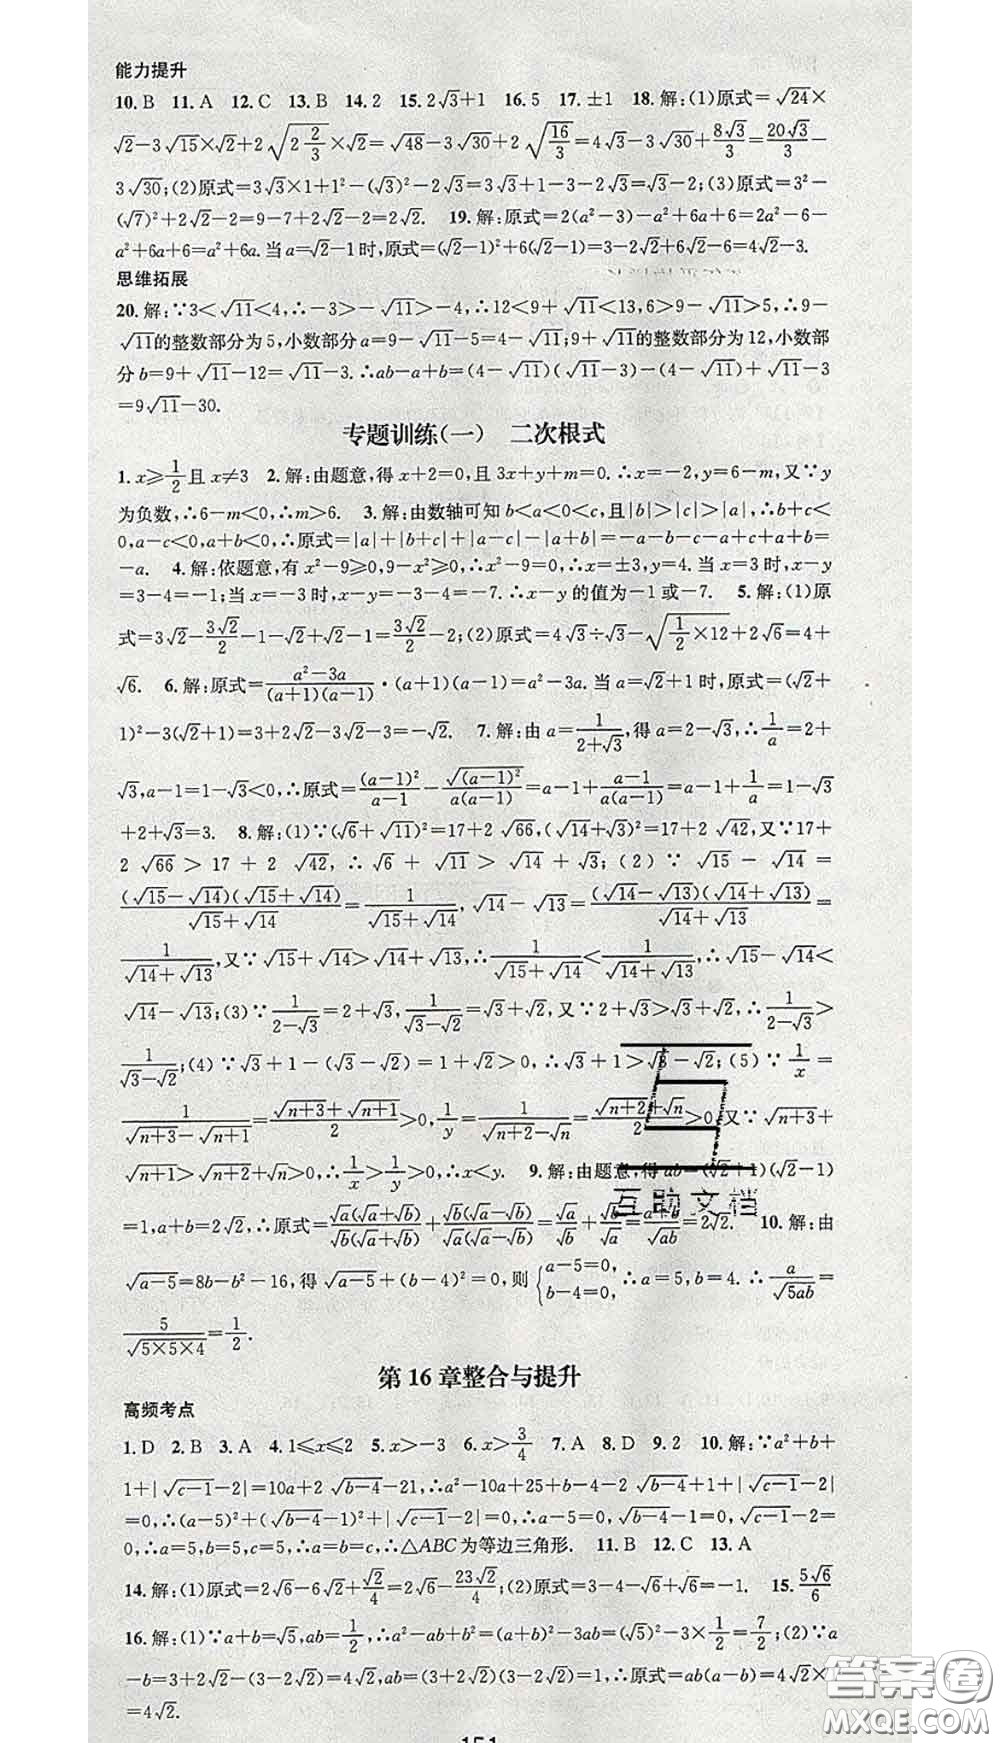 能力提升
10. B 11. A 12. C 13. B 14. 2 15. 2√3+1 16. 5 17. ±1 18. 解:(1)原式=√24×
√2-3√15×√2+2√(2 2/3)×√2=√48-3√30+2√(16/3)=4√3-3√30+8√3/3=20√3/3-
3√30;(2)原式=3√3×1+1²-(√3)²-2√3=3√3+1-3-2√3=√3-2;(3)原式=3²-
(√7)²+2√2-2=9-7+2√2-2=2√2. 19. 解:原式=2(a²-3)-a²+6a+6=2a²-6-
a²+6a+6=a²+6a.当a=√2-1时,原式=(√2-1)²+6(√2-1)=3-2√2+6√2-6=4√2-3.
思维拓展
20. 解:∵3<√11<4,∴-3>-√11>-4,∴12<9+√11<13,6>9-√11>5,∴9-
√11的整数部分为5,小数部分a=9-√11-5=4-√11;9+√11的整数部分为12,小数部
分b=9+√11-12=√11-3.∴ab-a+b=(4-√11)(√11-3)-(4-√11)+√11-3
=9√11-30.
专题训练(一) 二次根式
1. x≥1/2且x≠3 2. 解:由题意,得x+2=0,且3x+y+m=0.∴x=-2,y=6-m,又∵y
为负数,∴6-m<0,∴m>6. 3. 解:由数轴可知b<a<0<c,且|b|>|c|>|a|,∴b+c<
0,a-c<0,a+b<0,∴原式=|a|+|b+c|+|a-c|-|a+b|=-a-b-c-a+c+a+b=
-a. 4. 解:依题意,有x²-9≥0,9-x²≥0,∴x²-9=0,∴x=±3,y=4.当x=3时,x-y
=3-4=-1;当x=-3时,x-y=-3-4=-7.∴x-y的值为-1或-7. 5. 解:(1)原
式=3√2-3√2/2-1-√2+√2-1=3√2/2-2;(2)原式=4√3÷√3-√(1/2×12)+2√6=4+
√6. 6. 解:原式=(a²-3a)/((a+1)(a-1))·(a+1)(a-1)=a²-3a.当a=√2+1时,原式=(√2+
1)²-3(√2+1)=3+2√2-3√2-3=-√2. 7. 解:由a=1/(2+√3),得a=2-√3,∴1/a=2+
√3,a-1=1-√3<0,∴原式=(a-1)²/(a-1)-√(a-1)²/(a(a-1))=a-1+(a-1)/(a(a-1))=a-1+1/a=1-√3
+2+√3=3. 8. 解:(1)∵(√6+√11)²=17+2√66,(√14+√3)²=17+2√42,又∵17+
2√66>17+2√42,∴√6+√11>√14+√3;(2)∵√15-√14=
(√15-√14)(√15+√14)/(√15+√14)=1/(√15+√14),√14-√13=(√14-√13)(√14+√13)/(√14+√13)=
1/(√14+√13),又∵√15+√14>√14+√13,∴1/(√15+√14)<1/(√14+√13),∴√15-√14<
√14-√13;(3)∵1/(2-√3)=2+√3,1/(√3-√2)=√3+√2,又∵2+√3>√3+√2,∴1/(2-√3)>
1/(√3-√2);(4)∵√3+1-(√3-√2)=1+√2>0,∴√3+1>√3-√2;(5)∵1/x=
1/(√(n+3)-√(n+1))=(√(n+3)+√(n+1))/2>0,1/y=1/(√(n+2)-√n)=(√(n+2)+√n)/2>0,又∵√(n+3)+
√(n+1)>√(n+2)+√n>0,∴1/x>1/y,∴x<y. 9. 解:由题意,得ab=(√2+1)(√2-1)
=1,a+b=2√2,∴原式=√a(√a+√b)/(√b(√a+√b))+√b(√a-√b)/(√a(√a-√b))=√a/√b+√b/√a=(a+b)/√ab=2√2. 10. 解:由
√(a-5)=8b-b²-16,得√(a-5)+(b-4)²=0,则{a-5=0, b-4=0, ∴a=5,b=4.∴a/√(5ab)=
5/√(5×5×4)=1/2.
第16章整合与提升
高频考点
1. D 2. B 3. A 4. 1≤x≤2 5. x>-3 6. x>3/4 7. A 8. D 9. 2 10. 解:∵a²+b+
1+|√(c-1)-2|=10a+2√(b-4)-21,∴a²-10a+25+b-4-2√(b-4)+1+|√(c-1)-2|
=0,∴(a-5)²+(√(b-4)-1)²+|√(c-1)-2|=0,∴a-5=0,√(b-4)-1=0,√(c-1)-2
=0,∴a=5,b=5,c=5,∴a=b=c,∴△ABC为等边三角形. 11. B 12. C 13. A
14. 解:(1)原式=2√6-6√2+√2/4=2√6-23√2/4;(2)原式=3-4-√6+√6=-1. 15. 5√6/6
16. 解:(1)∵a+b=√5,ab=1/2,∴a²-ab+b²=(a+b)²-3ab=(√5)²-3×1/2=7/2;(2)∵a
-b=3+2√2-(3-2√2)=4√2,ab=(3+2√2)(3-2√2)=1,∴原式=ab(a-b)=4√2×1
=4√2.
151
互助文档
答案圈
MXQE.COM